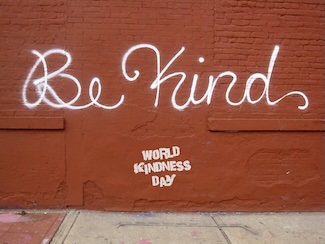 Be Kind
WORLD
KINDNESS
DAY